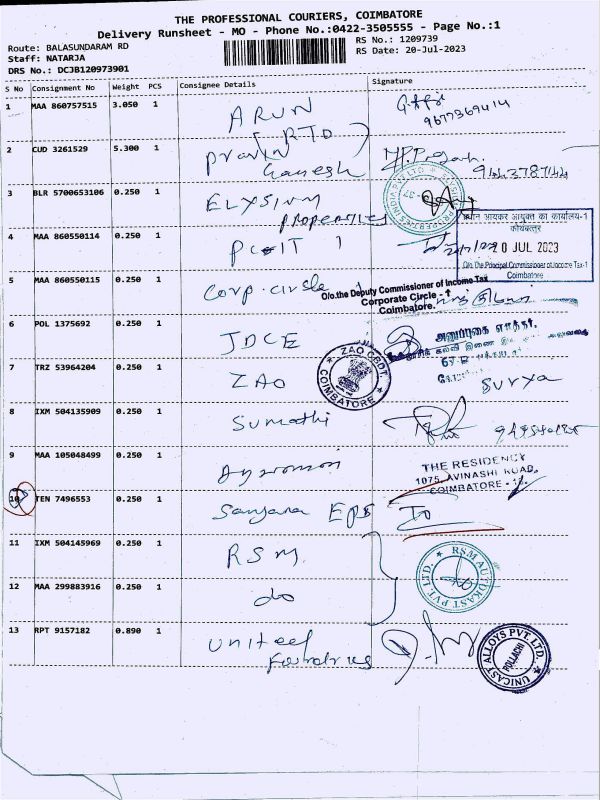 THE PROFESSIONAL COURIERS, COIMBATORE
Delivery Runsheet - MO - Phone No.:0422-3505555 - Page No.:1
Route: BALASUNDARAM RD
Staff: NATARJA
DRS No.: DCJB120973901
RS No.: 1209739
RS Date: 20-Jul-2023
S No Consignment No Weight PCS Consignee Details Signature
1 MAA 860757515 3.050 1 ARUN
9677369414
RTO
2 CUD 3261529 5.300 1 Pravin
Ganesh
3 BLR 5700653106 0.250 1 ELYSIUM
Properties
4 MAA 860550114 0.250 1 PCIT 1
प्रधान आयकर आयुक्त का कार्यालय-1
कोयंबत्तूर
20 JUL 2023
O/o.The Principal Commissioner of Income Tax-1
Coimbatore
5 MAA 860550115 0.250 1 Corp. circle 1
O/o.the Deputy Commissioner of Income Tax
Corporate Circle - 1
Coimbatore.
6 POL 1375692 0.250 1 JDCE
7 TRZ 53964204 0.250 1 ZAO
ZAO CBDT
COIMBATORE
Surya
8 IXM 504135909 0.250 1 Sumathi
9 MAA 105048499 0.250 1
THE RESIDENCY
1075, AVINASHI ROAD,
COIMBATORE -
10 TEN 7496553 0.250 1 Sanjana EPS
11 IXM 504145969 0.250 1 RSM
12 MAA 299883916 0.250 1 do
RSM AUTOKAST PVT. LTD.
13 RPT 9157182 0.890 1 United
Foundries
UNICAST ALLOYS PVT. LTD.
POLLACHI